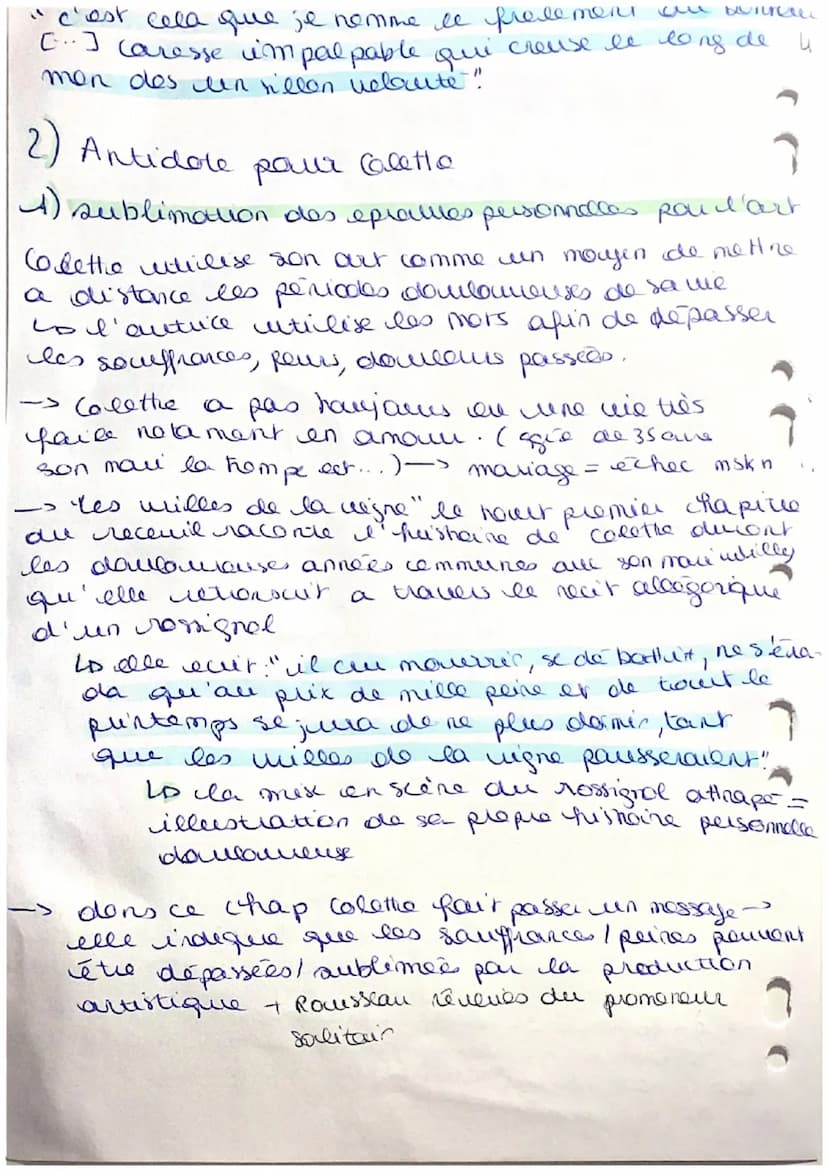 "c'est cela que je nomme le frolement du bonheur
[...] caresse impalpable qui creuse le long de
mon dos un sillon velouté".
2) Antidote pour Colette
1) sublimation des epreuves personnelles par l'art
Colette utilise son art comme un moyen de mettre
a distance les périodes douloureuses de sa vie
↳ l'autrice utilise les mots afin de dépasser
les souffrances, peurs, douleurs passées.
-> Colette a pas toujours eu une vie très
facile notament en amour. (agée de 35 ans
son mari la trompe ect...) -> mariage = echec mskn
-> "les vrilles de la vigne" le tout premier chapitre
du receuil raconte l'histoire de Colette durant
les douloureuses années communes avec son mari willy
qu'elle retranscrit a travers le recit allégorique
d'un rossignol
↳ elle ecrit: "il cru mourrir, se débattit, ne s'éva-
da qu'au prix de mille peine et de tout le
printemps se jura de ne plus dormir, tant
que les vrilles de la vigne pousseraient".
↳ la mise en scène du rossignol attrapé =
illustration de sa propre histoire personnelle
douloureuse
-> dans ce chap Colette fait passer un message ->
elle indique que les souffrances / peines peuvent
être dépassées / sublimées par la production
artistique + Rousseau rêveries du promeneur
solitair